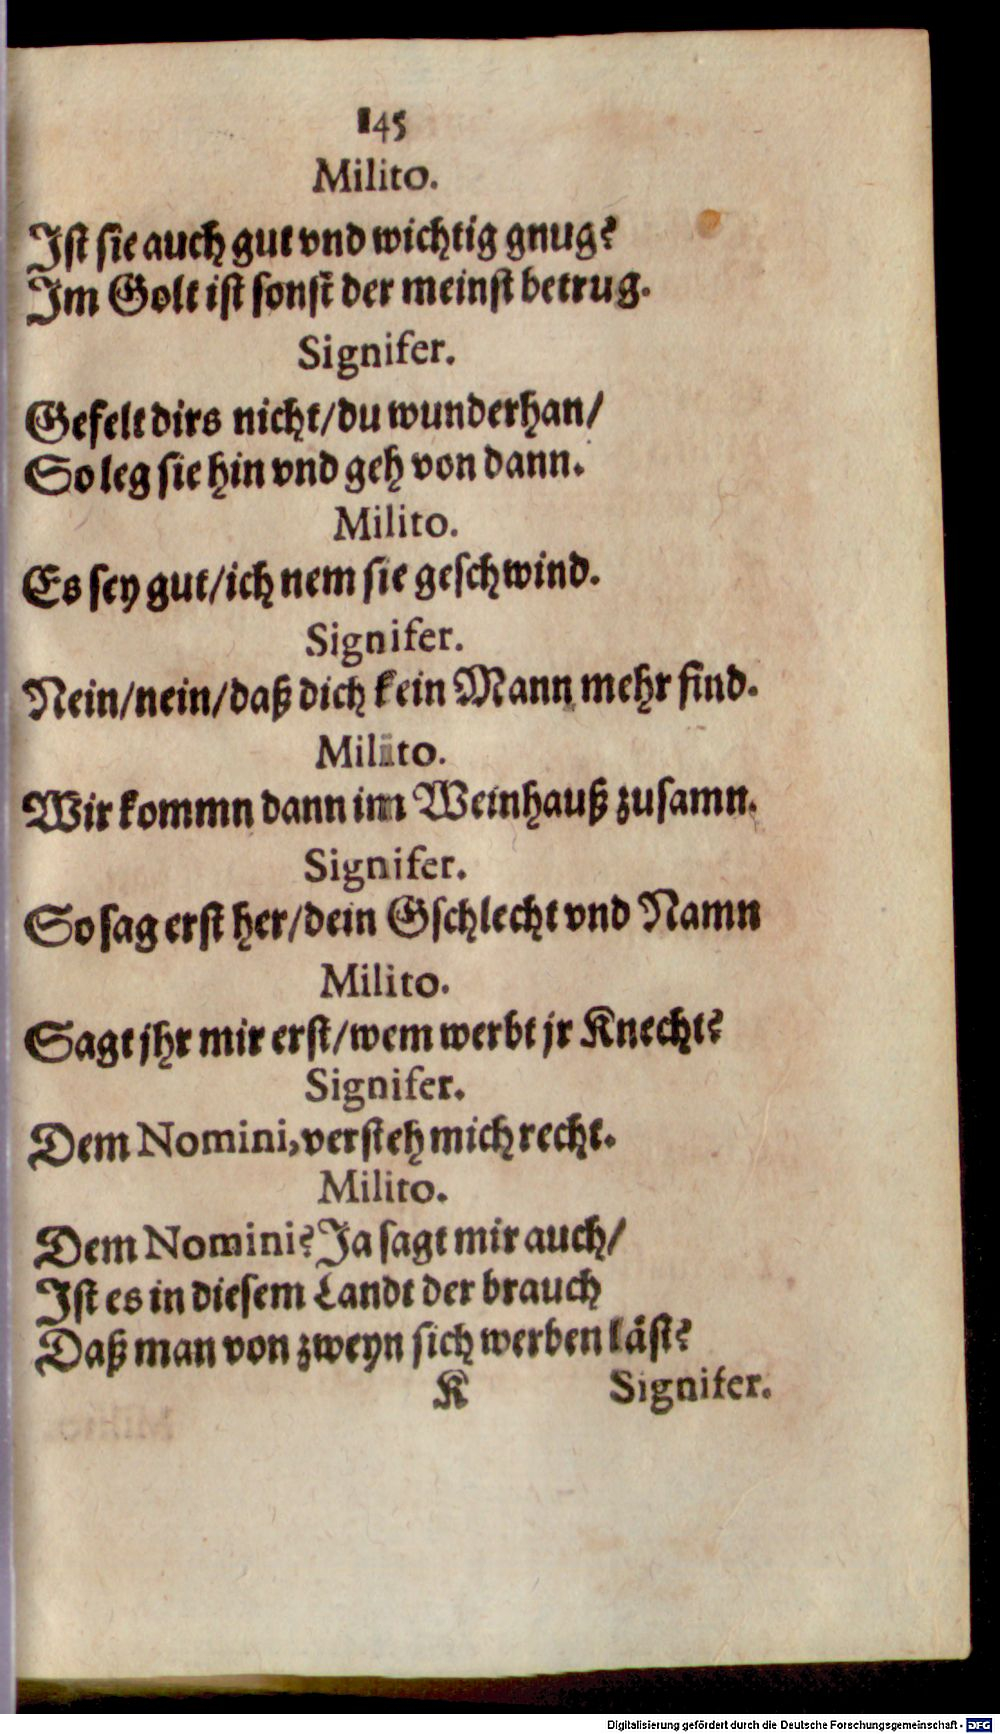 145
Milito.
Ist sie auch gut vnd wichtig gnug?
Im Golt ist sonst der meinst betrug.
Signifer.
Gefelt dirs nicht/du wunderhan/
So leg sie hin vnd geh von dann.
Milito.
Es sey gut/ich nem sie geschwind.
Signifer.
Nein/nein/daß dich kein Mann mehr find.
Milito.
Wir kommn dann im Weinhauß zusamn.
Signifer.
So sag erst her/dein Gschlecht vnd Namn
Milito.
Sagt jhr mir erst/wem werbt jr Knecht?
Signifer.
Dem Nomini, versteh mich recht.
Milito.
Dem Nomini? Ja sagt mir auch/
Ist es in diesem Landt der brauch
Daß man von zweyn sich werben läst?
K Signifer.
Digitalisierung gefördert durch die Deutsche Forschungsgemeinschaft - DFG